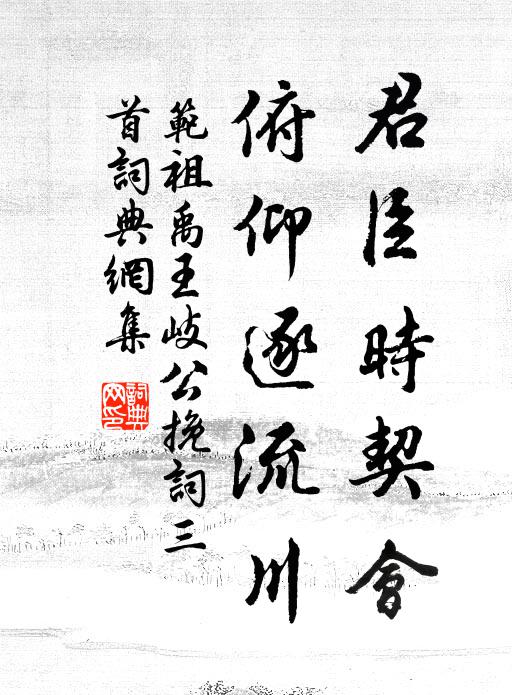 君臣時契會
俯仰逐流川
範祖禹王岐公挽詞三
首詞典網集
詞典
网印